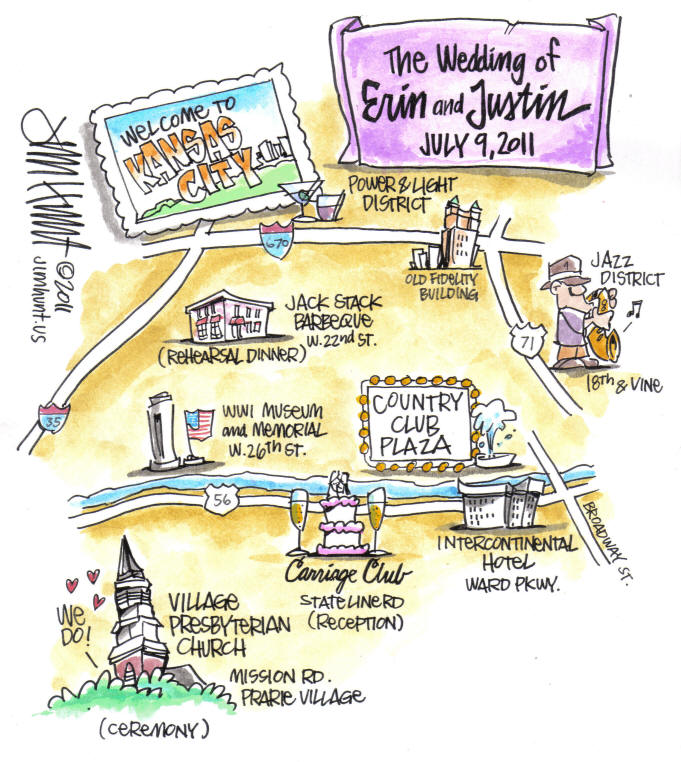 The Wedding of
Erin and Justin
JULY 9, 2011
WELCOME TO
KANSAS
CITY
JIM HUNT ©2011
JIMHUNT.US
POWER & LIGHT
DISTRICT
670
OLD FIDELITY
BUILDING
JAZZ
DISTRICT
18th & VINE
71
JACK STACK
BARBEQUE
W. 22nd ST.
(REHEARSAL DINNER)
35
WWI MUSEUM
and MEMORIAL
W. 26th ST.
COUNTRY
CLUB
PLAZA
56
BROADWAY ST.
Carriage Club
STATE LINE RD
(RECEPTION)
INTERCONTINENTAL
HOTEL
WARD PKWY.
WE
DO!
VILLAGE
PRESBYTERIAN
CHURCH
MISSION RD.
PRARIE VILLAGE
(CEREMONY)